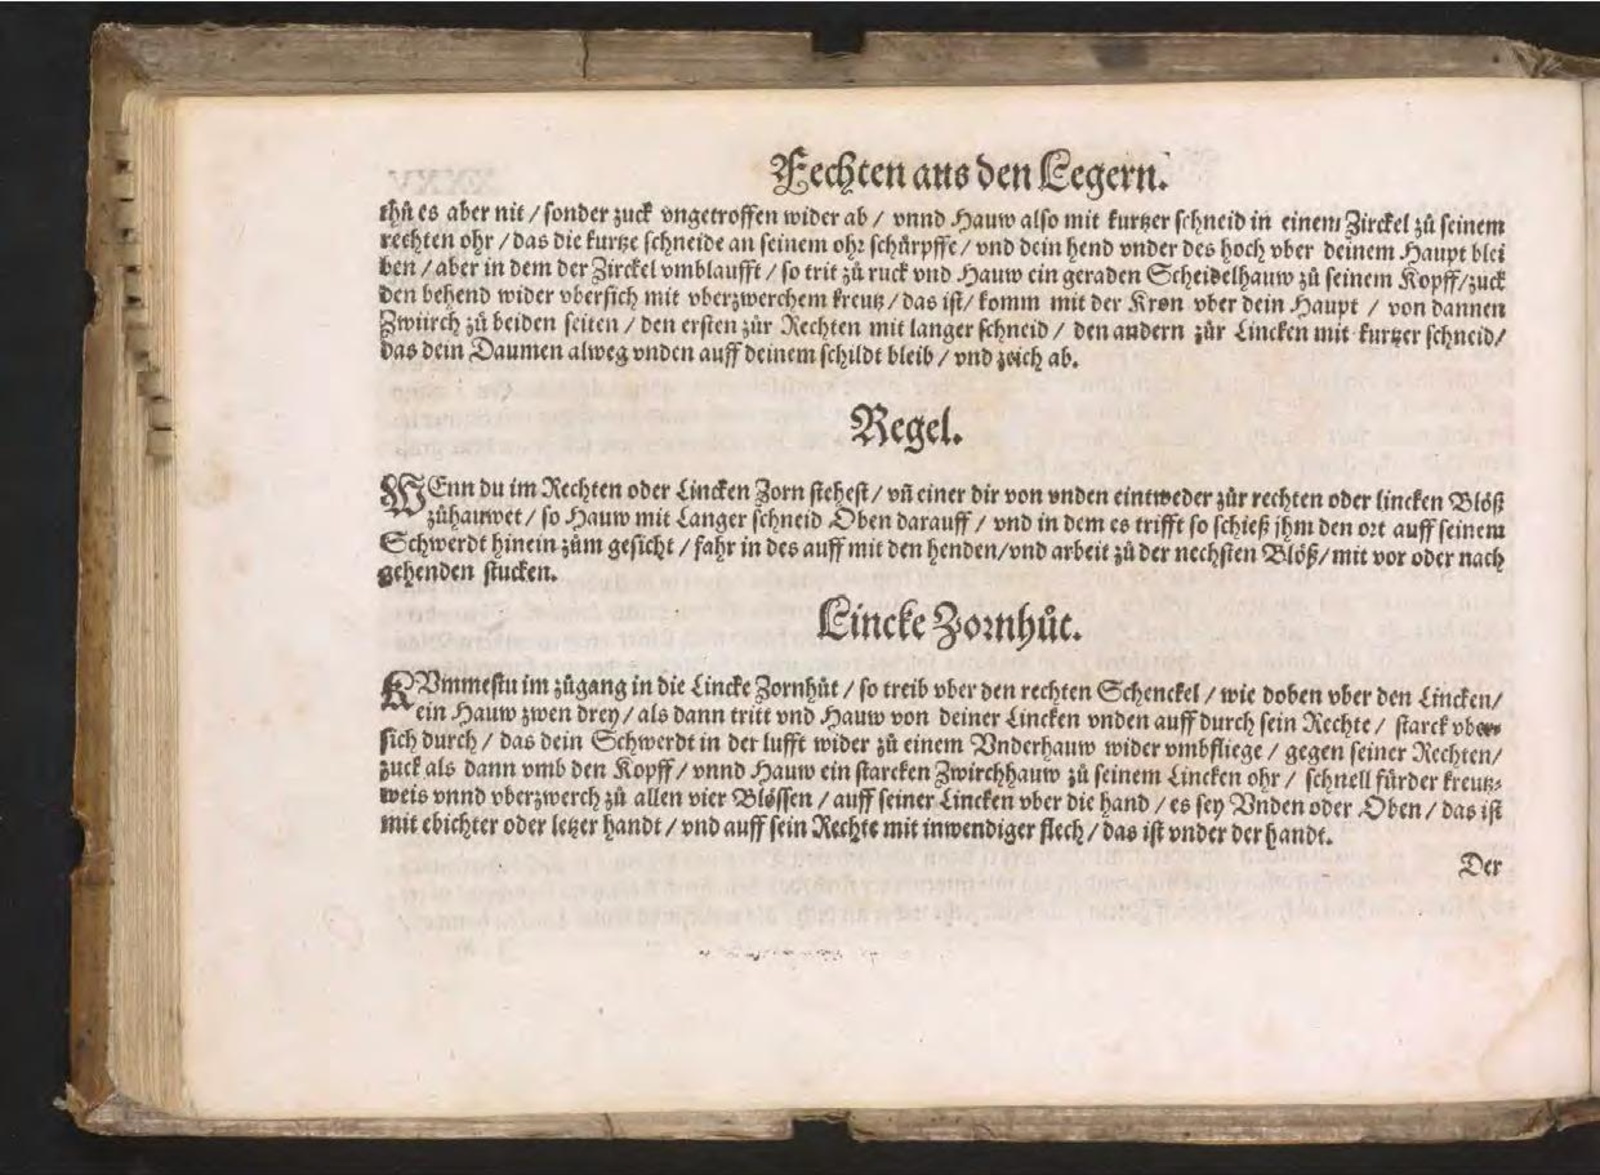 Fechten aus den Legern.
thů es aber nit / sonder zuck vngetroffen wider ab / vnnd Hauw also mit kurtzer schneid in einem Zirckel zů seinem
rechten ohr / das die kurtze schneide an seinem ohr schürpffe / vnd dein hend vnder des hoch vber deinem Haupt blei
ben / aber in dem der Zirckel vmblaufft / so trit zů ruck vnd Hauw ein geraden Scheidelhauw zů seinem Kopff / zuck
den behend wider vbersich mit vberzwerchem kreutz / das ist / komm mit der Kron vber dein Haupt / von dannen
Zwürch zů beiden seiten / den ersten zůr Rechten mit langer schneid / den andern zůr Lincken mit kurtzer schneid /
das dein Daumen alweg vnden auff deinem schildt bleib / vnd zeich ab.
Regel.
WEnn du im Rechten oder Lincken Zorn stehest / vñ einer dir von vnden eintweder zůr rechten oder lincken Blöß
zůhauwet / so Hauw mit Langer schneid Oben darauff / vnd in dem es trifft so schieß jhm den ort auff seinem
Schwerdt hinein zům gesicht / fahr in des auff mit den henden / vnd arbeit zů der nechsten Blöß / mit vor oder nach
gehenden stucken.
Lincke Zornhůt.
KVmmestu im zůgang in die Lincke Zornhůt / so treib vber den rechten Schenckel / wie doben vber den Lincken /
ein Hauw zwen drey / als dann tritt vnd Hauw von deiner Lincken vnden auff durch sein Rechte / starck vber
sich durch / das dein Schwerdt in der lufft wider zů einem Vnderhauw wider vmbfliege / gegen seiner Rechten /
zuck als dann vmb den Kopff / vnnd Hauw ein starcken Zwirchhauw zů seinem Lincken ohr / schnell fürder kreutz-
weis vnnd vberzwerch zů allen vier Blössen / auff seiner Lincken vber die hand / es sey Vnden oder Oben / das ist
mit ebichter oder letzer handt / vnd auff sein Rechte mit inwendiger flech / das ist vnder der handt.
Der